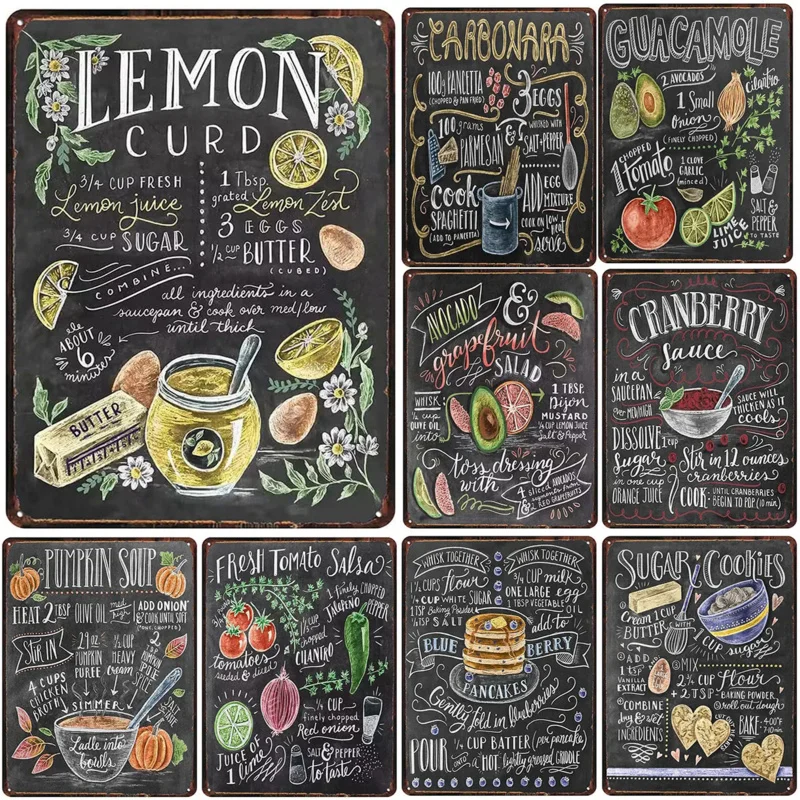 LEMON
CURD
3/4 CUP FRESH
Lemon juice
3/4 CUP SUGAR
1 Tbsp.
grated Lemon Zest
3 EGGS
1/2 CUP BUTTER
(CUBED)
COMBINE...
all ingredients in a
saucepan & cook over med/low
until thick
ABOUT
6
minutes
BUTTER
CARBONARA
100g PANCETTA
(CHOPPED & PAN FRIED)
3 EGGS
WHISKED WITH
SALT & PEPPER
100 grams
PARMESAN &
cook
SPAGHETTI
(ADD TO PANCETTA)
ADD EGG
MIXTURE
COOK ON low heat
serve
GUACAMOLE
2 AVOCADOS
1 Small
Onion
(FINELY CHOPPED)
cilantro
1 CHOPPED
Tomato
1 CLOVE
GARLIC
(minced)
LIME
JUICE
SALT &
PEPPER
TO TASTE
AVOCADO
&
grapefruit
SALAD
WHISK
1/2 cup
OLIVE OIL
into
1 TBSP.
Dijon
MUSTARD
1/4 CUP LEMON JUICE
Salt & Pepper
toss dressing
with
4 sliced AVOCADOS
2 RED GRAPEFRUITS
CRANBERRY
Sauce
in a
SAUCEPAN
over MED/HIGH
SAUCE WILL
THICKEN AS IT
cools
DISSOLVE
1 cup
Sugar
in one cup
ORANGE JUICE
Stir in 12 ounces
cranberries
COOK UNTIL CRANBERRIES
BEGIN TO POP (10 min)
PUMPKIN SOUP
HEAT 2 TBSP OLIVE OIL med high
ADD ONION
& COOK UNTIL SOFT
(ONE, CHOPPED)
STIR IN
29 oz
PUMPKIN
PUREE
1/2 CUP
HEAVY
Cream
PUMPKIN
PIE
SPICE
4 CUPS
CHICKEN
BROTH
SIMMER
Ladle into
bowls
FRESH TOMATO Salsa
1 finely CHOPPED
JALAPEÑO PEPPER
tomatoes
seeded & diced
1/2 CUP
chopped
CILANTRO
1/4 CUP
finely chopped
Red onion
JUICE OF
1 lime
SALT & PEPPER
to taste
WHISK TOGETHER
1 1/4 CUPS flour
1/4 CUP WHITE SUGAR
1 TSP Baking Powder
1/4 TSP SALT
WHISK TOGETHER
3/4 CUP milk
ONE LARGE egg
1 TBSP VEGETABLE OIL
add to
BLUE BERRY
PANCAKES
Gently fold in blueberries
POUR 1/4 CUP BATTER (per pancake)
ONTO a HOT lightly greased GRIDDLE
SUGAR COOKIES
Cream 1 CUP
BUTTER
1 CUP sugar
ADD
1 tsp
VANILLA
EXTRACT
MIX
2 3/4 CUP Flour
+ 2 TSP BAKING POWDER
roll out dough
COMBINE
dry & wet
INGREDIENTS
CUT OUT
BAKE 400°F
7-10 min.